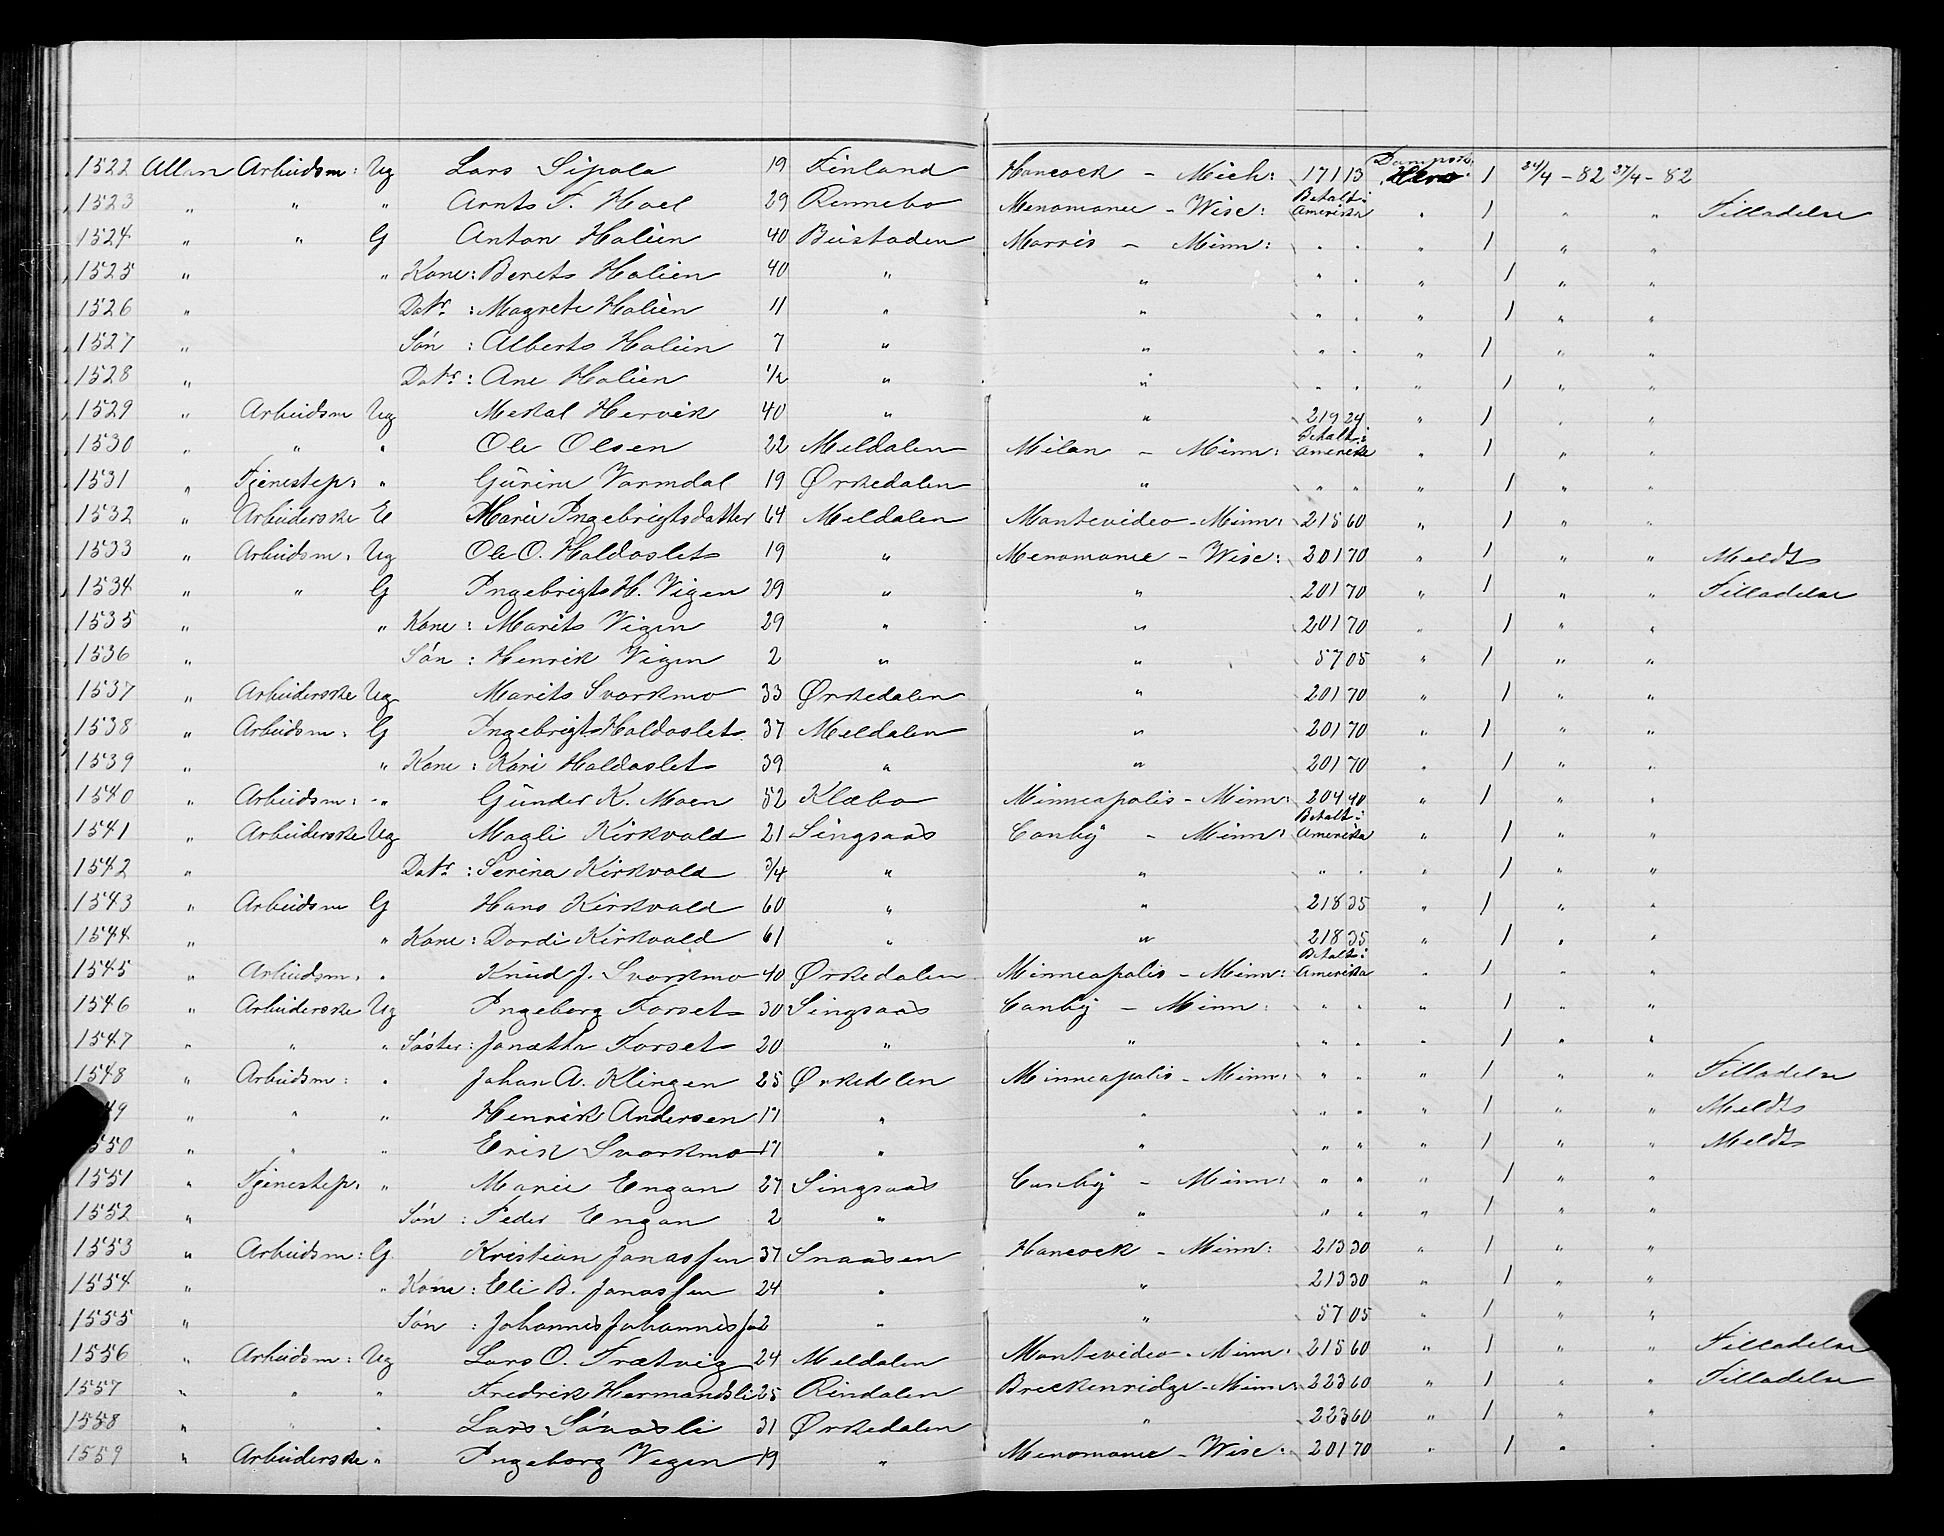 1522 Allan Arbeidsm: Ug Lars Sipola 19 Finland Hancock – Mich: 171 13 Dampsk. Hero 1 24/4 – 82 27/4 – 82
1523 " " " Arnt F. Hoel 29 Rennebo Menomonee – Wisc: Betalt i Amerika " 1 " " Tilladelse
1524 " " G Anton Halien 40 Budstaden Morris – Minn: " " " 1 " "
1525 " " Kone: Beret Halien 40 " " " " " 1 " "
1526 " Datr: Magrete Halien 11 " " " " " 1 " "
1527 " Søn: Albert Halien 7 " " " " " 1 " "
1528 " Datr: Ane Halien 1/2 " " " " " 1 " "
1529 " Arbeidsm Ug Mekal Hervik 40 " " 219 24 " 1 " "
1530 " " " Ole Olsen 22 Meldalen Milan – Minn: Betalt i Amerika " 1 " "
1531 " Tjenestep: " Gurine Varmdal 19 Ørkedalen " " " " 1 " "
1532 " Arbeiderske E Marie Ingebrigtsdatter 64 Meldalen Montevideo – Minn: 215 60 " 1 " "
1533 " Arbeidsm: Ug Ole O. Haldaslet 19 " Menomonee – Wisc: 201 70 " 1 " " Meldt
1534 " " G Ingebrigt H. Vigen 29 " " 201 70 " 1 " " Tilladelse
1535 " " Kone: Marit Vigen 29 " " 201 70 " 1 " "
1536 " Søn: Henrik Vigen 2 " " 57 05 " 1 " "
1537 " Arbeiderske Ug Marit Svorkmo 33 Ørkedalen " 201 70 " 1 " "
1538 " Arbeidsm: G Ingebrigt Haldaslet 37 Meldalen " 201 70 " 1 " "
1539 " " Kone: Kari Haldaslet 39 " " 201 70 " 1 " "
1540 " Arbeidsm: " Gunder K. Moen 52 Klæbo Minneapolis – Minn: 204 40 " 1 " "
1541 " Arbeiderske Ug Magli Kirkvold 21 Singsaas Canby – Minn: Betalt i Amerika " 1 " "
1542 " Datr: Serina Kirkvold 3/4 " " " " " 1 " "
1543 " Arbeidsm G Hans Kirkvold 60 " " 218 35 " 1 " "
1544 " " Kone: Dordi Kirkvold 61 " " 218 35 " 1 " "
1545 " Arbeidsm: " Knud J. Svorkmo 40 Ørkedalen Minneapolis – Minn: Betalt i Amerika " 1 " "
1546 " Arbeiderske Ug Ingeborg Forset 30 Singsaas Canby – Minn: " " " 1 " "
1547 " " " Søster: Janetta Forset 20 " " " " " 1 " "
1548 " Arbeidsm: " Johan A. Klingen 25 Ørkedalen Minneapolis – Minn: " " " 1 " " Tilladelse
49 " " " Henrik Andersen 17 " " " " " 1 " " Meldt
550 " " " Erik Svorkmo 17 " " " " " 1 " " Meldt
1551 " Tjenestep: " Marie Engan 27 Singsaas Canby – Minn: " " " 1 " "
1552 " Søn: Peder Engan 2 " " " " " 1 " "
1553 " Arbeidsm: G Kristian Janassen 37 Snaasen Hancock – Minn: 213 30 " 1 " "
1554 " " Kone: Eli B. Janassen 24 " " 213 30 " 1 " "
1555 " Søn: Johannes Johannes 2 " " 57 05 " 1 " "
1556 " Arbeidsm: Ug Lars O. Frætvig 24 Meldalen Montevideo – Minn: 215 60 " 1 " " Tilladelse
1557 " " " Fredrik Hermandsli 25 Rindalen Breckenridge – Minn: 223 60 " 1 " " Tilladelse
1558 " " " Lars Sónasli 31 Ørkedalen " 223 60 " 1 " "
1559 " Arbeiderske " Ingeborg Vigen 19 " Menomonee – Wisc: 201 70 " 1 " "